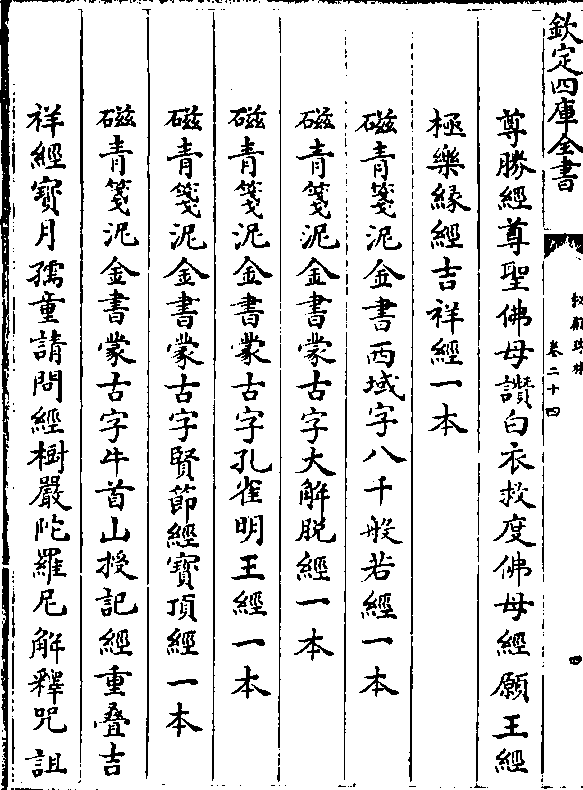 欽定四庫全書
秘殿珠林
卷二十四
四
尊勝經尊聖佛母讃白衣救度佛母經願王經
極樂緣經吉祥經一本
磁青箋泥金書西域字八千般若經一本
磁青箋泥金書蒙古字大解脱經一本
磁青箋泥金書蒙古字孔雀明王經一本
磁青箋泥金書蒙古字賢節經寳頂經一本
磁青箋泥金書蒙古字牛首山授記經重叠吉
祥經寳月孺童請問經樹嚴陀羅尼解釋咒詛